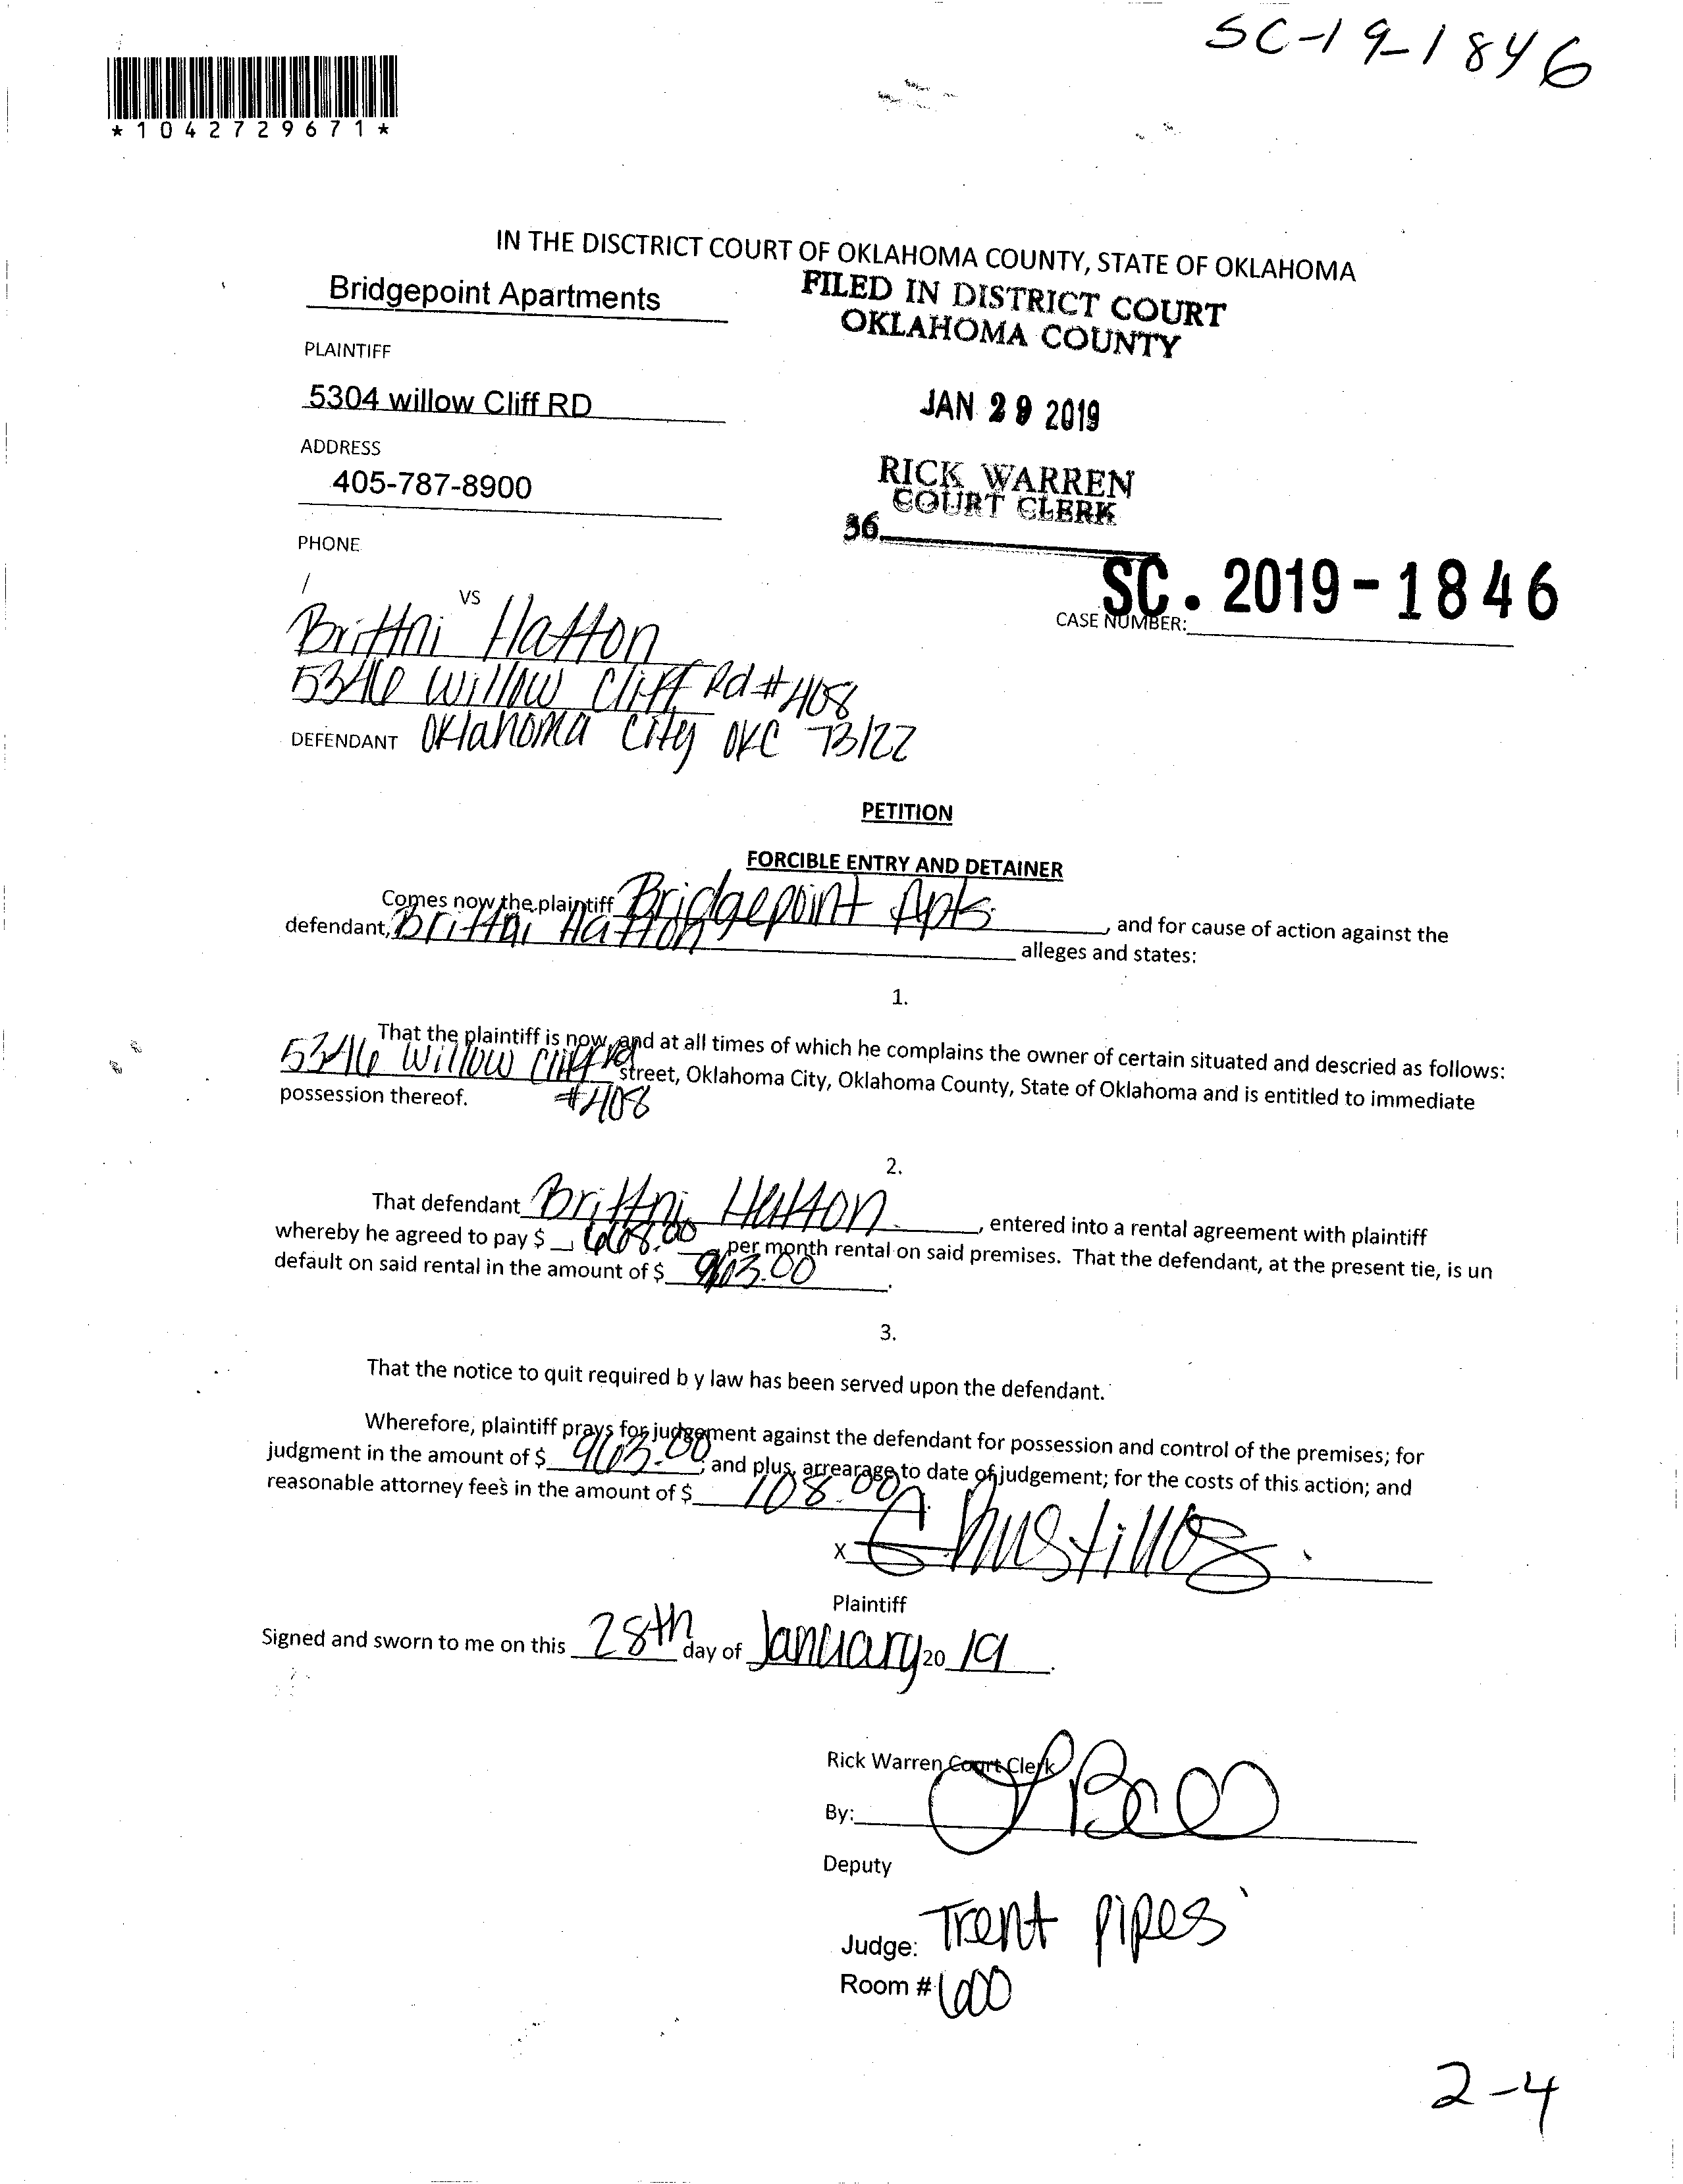 SC-19-1846
*1042729671*
IN THE DISCTRICT COURT OF OKLAHOMA COUNTY, STATE OF OKLAHOMA
Bridgepoint Apartments
FILED IN DISTRICT COURT
OKLAHOMA COUNTY
PLAINTIFF
5304 willow Cliff RD
JAN 29 2019
ADDRESS
405-787-8900
RICK WARREN
COURT CLERK
36
PHONE
VS
SC. 2019-1846
CASE NUMBER:
Brittni Hatton
5346 Willow Cliff Rd #408
DEFENDANT Oklahoma City OKC 73122
PETITION
FORCIBLE ENTRY AND DETAINER
Comes now the plaintiff Bridgepoint Apts , and for cause of action against the
defendant, Brittni Hatton alleges and states:
1.
That the plaintiff is now, and at all times of which he complains the owner of certain situated and descried as follows:
5346 Willow Cliff Rd street, Oklahoma City, Oklahoma County, State of Oklahoma and is entitled to immediate
possession thereof. #408
2.
That defendant Brittni Hatton , entered into a rental agreement with plaintiff
whereby he agreed to pay $ 668.00 per month rental on said premises. That the defendant, at the present tie, is un
default on said rental in the amount of $ 963.00 .
3.
That the notice to quit required b y law has been served upon the defendant.
Wherefore, plaintiff prays for judgement against the defendant for possession and control of the premises; for
judgment in the amount of $ 963.00 ; and plus, arrearage to date of judgement; for the costs of this action; and
reasonable attorney fees in the amount of $ 108.00 .
X
Plaintiff
Signed and sworn to me on this 28th day of January 20 19 .
Rick Warren Court Clerk
By:
Deputy
Judge: Trent Pipes
Room # 600
2-4